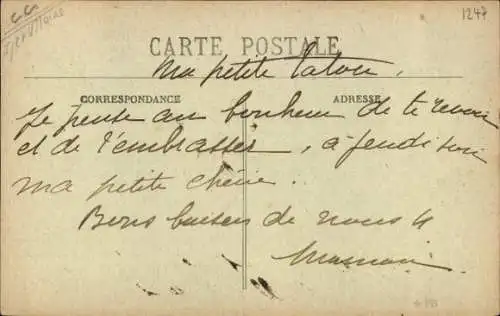 1247
CARTE POSTALE
Ma petite
CORRESPONDANCE
ADRESSE
Je pense au bonheur de te revoir
et de t'embrasser, à jeudi soir
ma petite chérie.
Bons baisers de nous 4
Maman